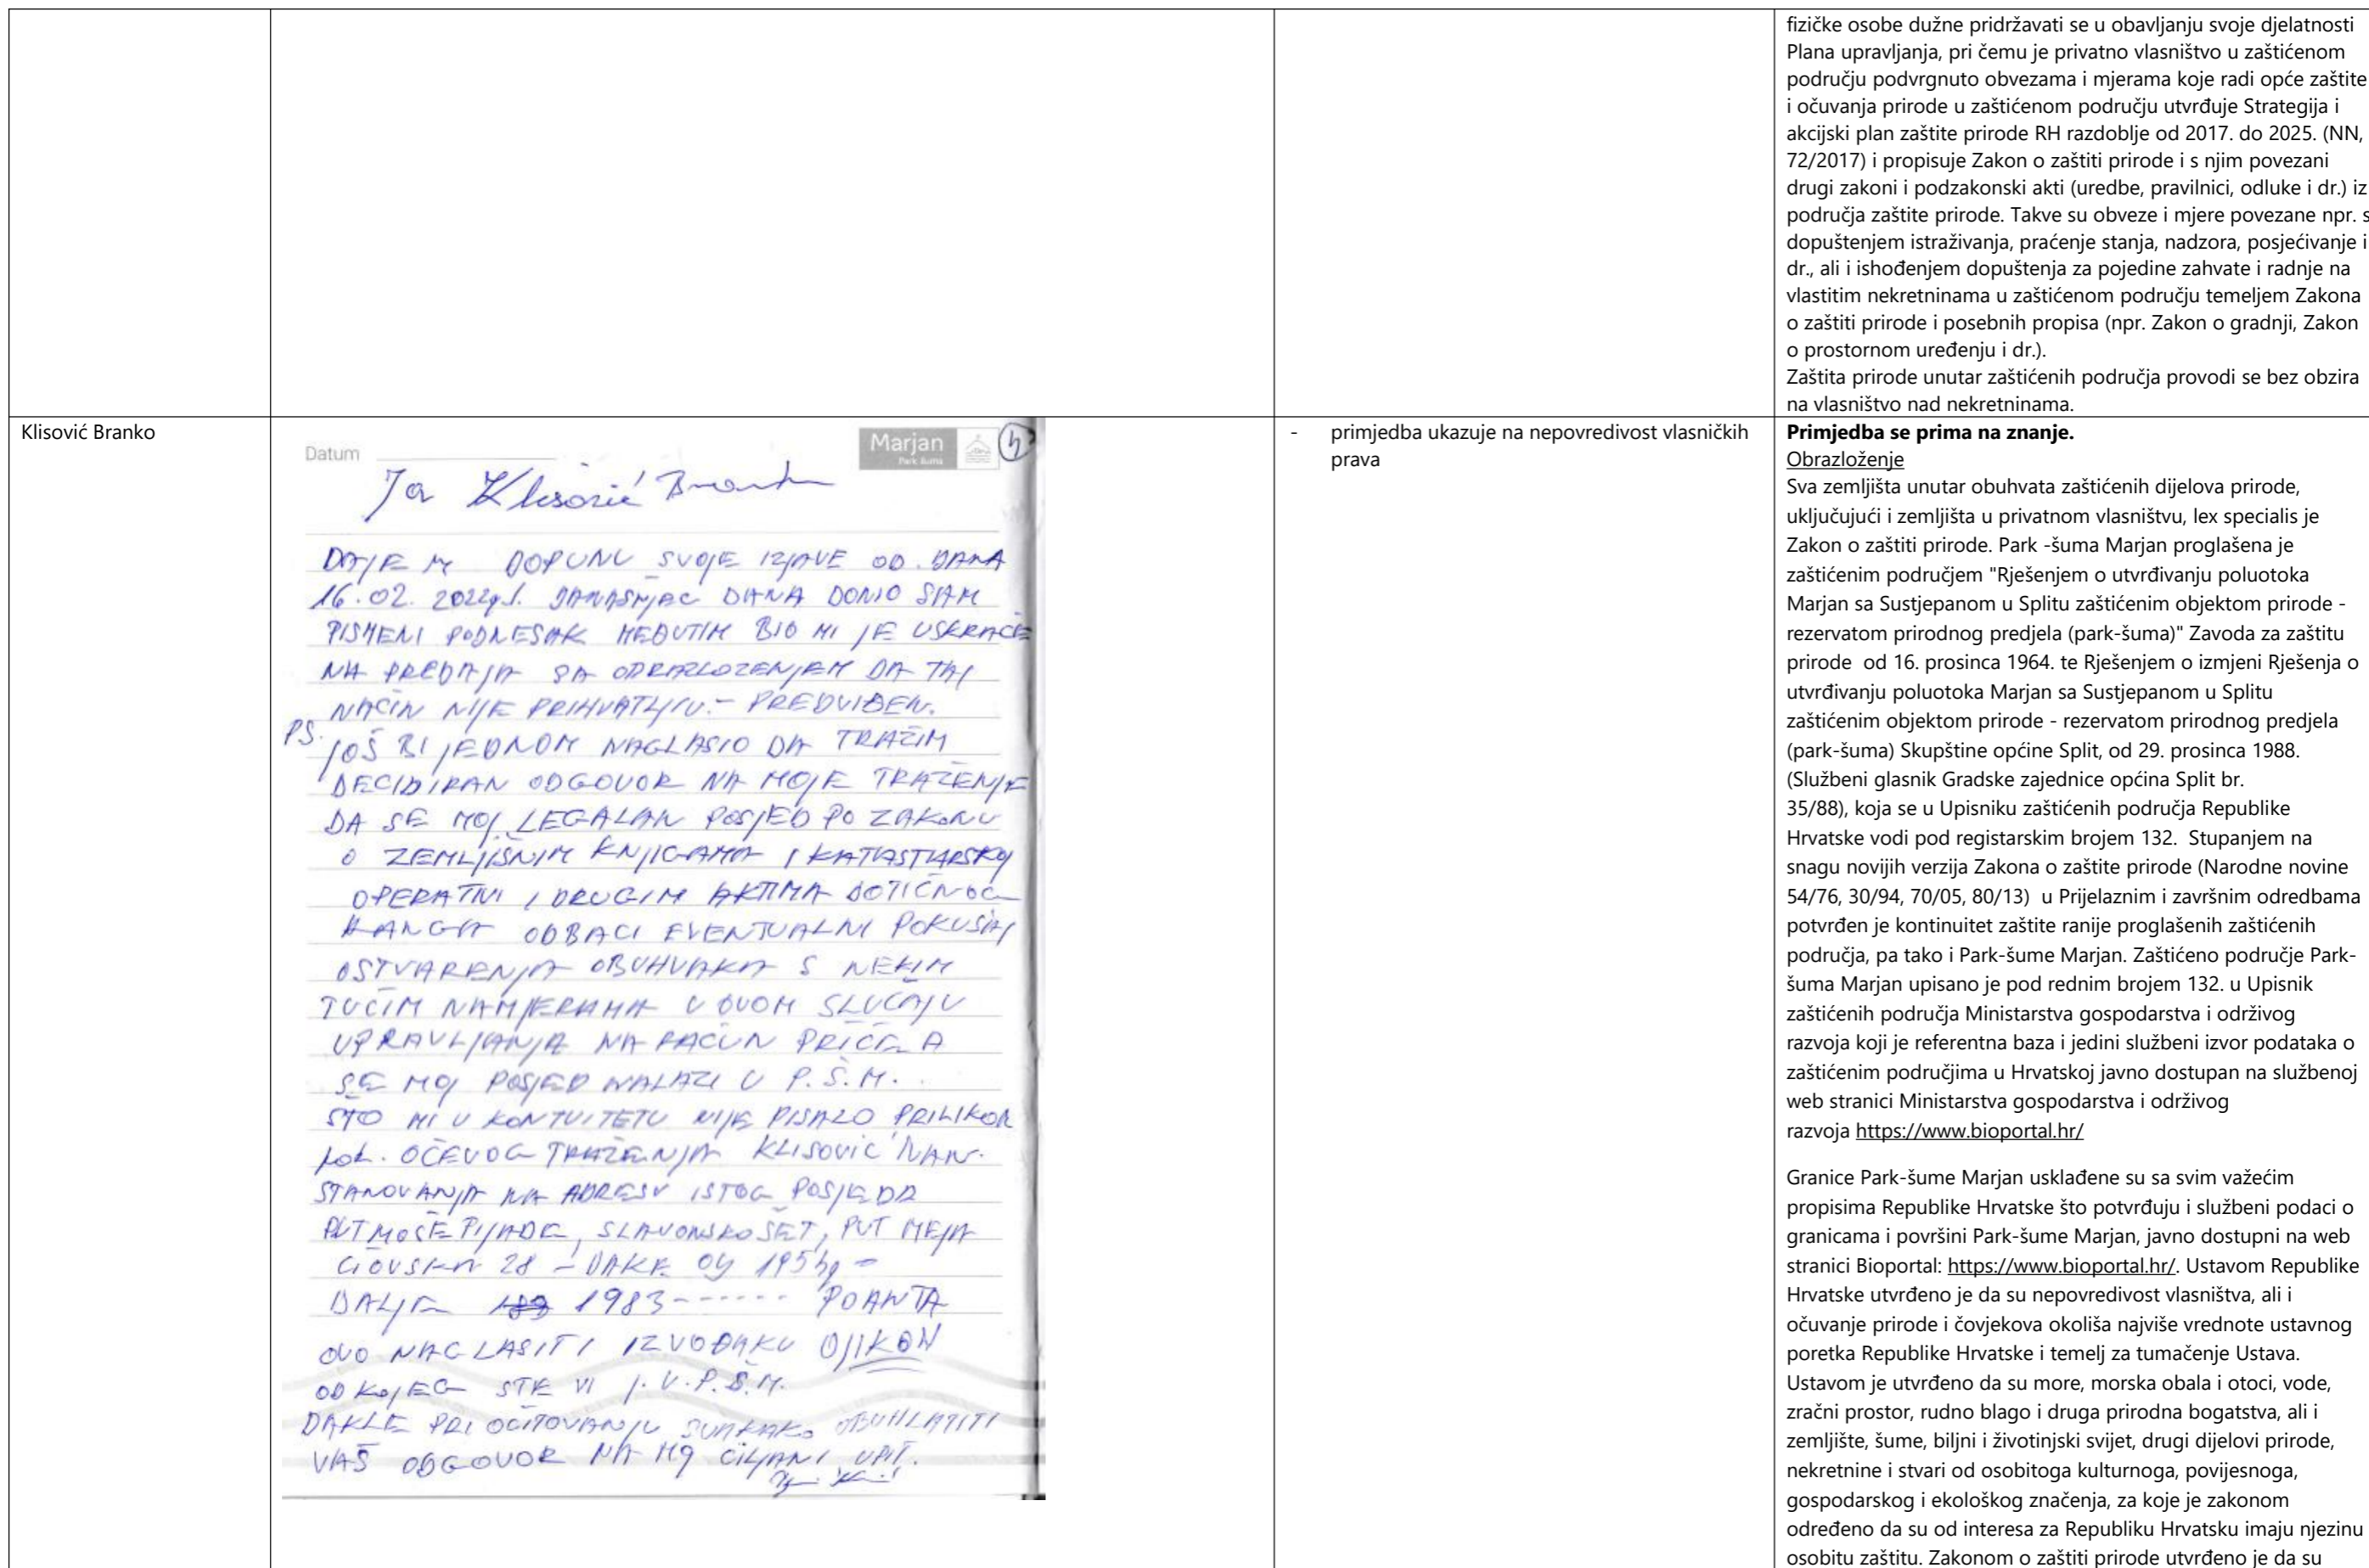 fizičke osobe dužne pridržavati se u obavljanju svoje djelatnosti
Plana upravljanja, pri čemu je privatno vlasništvo u zaštićenom
području podvrgnuto obvezama i mjerama koje radi opće zaštite
i očuvanja prirode u zaštićenom području utvrđuje Strategija i
akcijski plan zaštite prirode RH razdoblje od 2017. do 2025. (NN,
72/2017) i propisuje Zakon o zaštiti prirode i s njim povezani
drugi zakoni i podzakonski akti (uredbe, pravilnici, odluke i dr.) iz
područja zaštite prirode. Takve su obveze i mjere povezane npr. s
dopuštenjem istraživanja, praćenje stanja, nadzora, posjećivanje i
dr., ali i ishođenjem dopuštenja za pojedine zahvate i radnje na
vlastitim nekretninama u zaštićenom području temeljem Zakona
o zaštiti prirode i posebnih propisa (npr. Zakon o gradnji, Zakon
o prostornom uređenju i dr.).
Zaštita prirode unutar zaštićenih područja provodi se bez obzira
na vlasništvo nad nekretninama.
Klisović Branko
Datum
Marjan
Park šuma
4
Ja Klisović Branko
DAJEM DOPUNU SVOJE IZJAVE OD DANA
16.02. 2022 DANAŠNJEG DANA DONIO SAM
PISMENI PODNESAK MEĐUTIM BIO MI JE USKRAĆE
NA PREDAJA SA OBRAZLOŽENJEM DA TAJ
NAČIN NIJE PRIHVATLJIV.- PREDVIĐEN.
PS. JOŠ BI JEDNOM NAGLASIO DA TRAŽIM
DECIDIRAN ODGOVOR NA MOJE TRAŽENJE
DA SE MOJ LEGALAN POSJED PO ZAKONU
O ZEMLJIŠNIM KNJIGAMA I KATASTARSKOJ
OPERATIVI I DRUGIM AKTIMA DOTIČNOG
RANGA ODBACI EVENTUALNI POKUŠAJ
OSTVARENJA OBUHVAKA S NEKIM
TUĐIM NAMJERAMA U OVOM SLUČAJU
UPRAVLJANJA NA RAČUN PRIČE A
SE MOJ POSJED NALAZI U P.Š.M.
ŠTO MI U KONTUITETU NIJE PISALO PRILIKOM
pok. OČEVOG TRAŽENJA KLISOVIĆ IVAN.
STANOVANJA NA ADRESU ISTOG POSJEDA
PUT MOŠE PIJADE, SLAVONSKO ŠET, PUT MEJA
ČIOVSKA 28 - DAKE OD
DALJE 1983------ POANTA
OVO NAGLASITI IZVOĐAKU OJIKON
OD KOJEG STE VI J.U.P.Š.M.
DAKLE PRI OČITOVANJU SVAKAKO OBUHLATITI
VAŠ ODGOVOR NA MOJ CILJANI UPIT.
- primjedba ukazuje na nepovredivost vlasničkih
prava
Primjedba se prima na znanje.
Obrazloženje
Sva zemljišta unutar obuhvata zaštićenih dijelova prirode,
uključujući i zemljišta u privatnom vlasništvu, lex specialis je
Zakon o zaštiti prirode. Park -šuma Marjan proglašena je
zaštićenim područjem "Rješenjem o utvrđivanju poluotoka
Marjan sa Sustjepanom u Splitu zaštićenim objektom prirode -
rezervatom prirodnog predjela (park-šuma)" Zavoda za zaštitu
prirode od 16. prosinca 1964. te Rješenjem o izmjeni Rješenja o
utvrđivanju poluotoka Marjan sa Sustjepanom u Splitu
zaštićenim objektom prirode - rezervatom prirodnog predjela
(park-šuma) Skupštine općine Split, od 29. prosinca 1988.
(Službeni glasnik Gradske zajednice općina Split br.
35/88), koja se u Upisniku zaštićenih područja Republike
Hrvatske vodi pod registarskim brojem 132. Stupanjem na
snagu novijih verzija Zakona o zaštite prirode (Narodne novine
54/76, 30/94, 70/05, 80/13) u Prijelaznim i završnim odredbama
potvrđen je kontinuitet zaštite ranije proglašenih zaštićenih
područja, pa tako i Park-šume Marjan. Zaštićeno područje Park-
šuma Marjan upisano je pod rednim brojem 132. u Upisnik
zaštićenih područja Ministarstva gospodarstva i održivog
razvoja koji je referentna baza i jedini službeni izvor podataka o
zaštićenim područjima u Hrvatskoj javno dostupan na službenoj
web stranici Ministarstva gospodarstva i održivog
razvoja https://www.bioportal.hr/
Granice Park-šume Marjan usklađene su sa svim važećim
propisima Republike Hrvatske što potvrđuju i službeni podaci o
granicama i površini Park-šume Marjan, javno dostupni na web
stranici Bioportal: https://www.bioportal.hr/. Ustavom Republike
Hrvatske utvrđeno je da su nepovredivost vlasništva, ali i
očuvanje prirode i čovjekova okoliša najviše vrednote ustavnog
poretka Republike Hrvatske i temelj za tumačenje Ustava.
Ustavom je utvrđeno da su more, morska obala i otoci, vode,
zračni prostor, rudno blago i druga prirodna bogatstva, ali i
zemljište, šume, biljni i životinjski svijet, drugi dijelovi prirode,
nekretnine i stvari od osobitoga kulturnoga, povijesnoga,
gospodarskog i ekološkog značenja, za koje je zakonom
određeno da su od interesa za Republiku Hrvatsku imaju njezinu
osobitu zaštitu. Zakonom o zaštiti prirode utvrđeno je da su